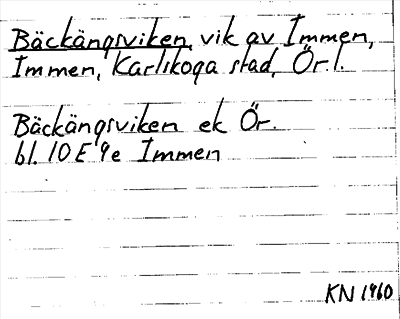 Bäckängsviken, vik av Immen,
Immen, Karlskoga stad, Ör l.
Bäckängsviken ek Ör.
bl. 10 E 9e Immen
KN 1960